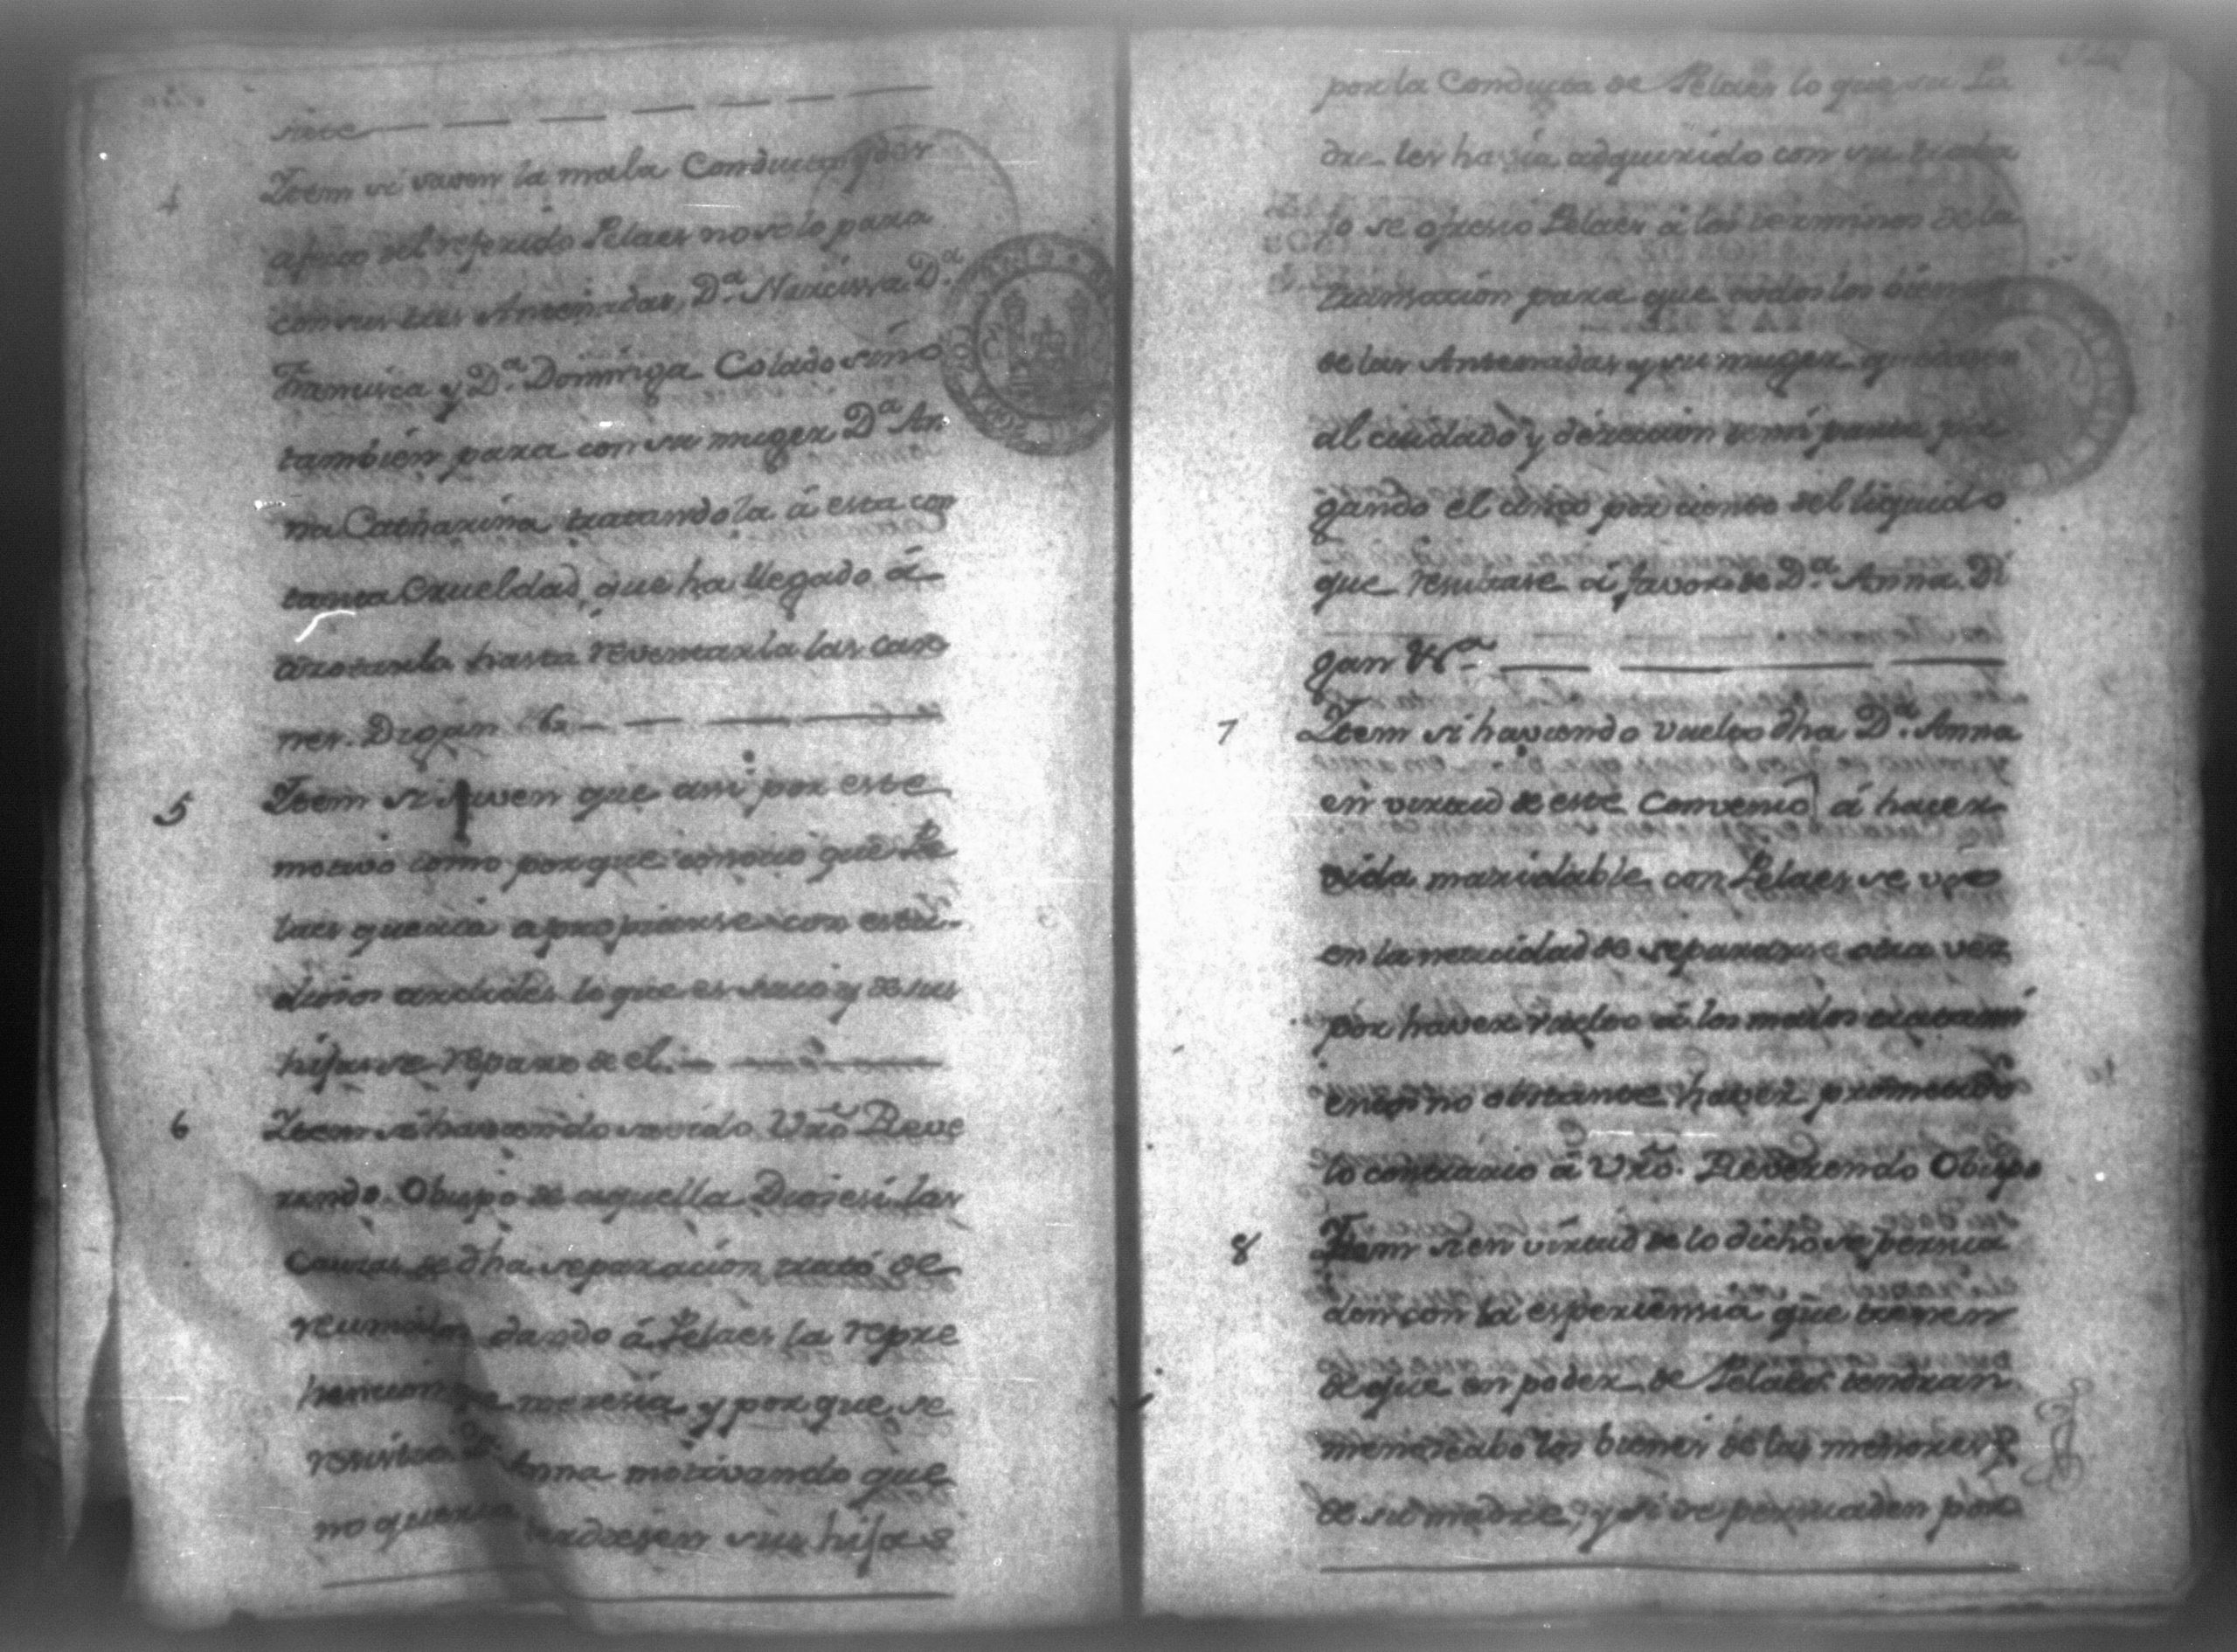 siete
4 Item si saven la mala Conducta y por
afeco del referido Pelaes no solo para
con sus tres Antenadas, D.ª Narcissa D.ª
Francisca y D.ª Dominga Colado sino
tambien para con su muger D.ª An
na Catharina tratandola á esta con
tanta Crueldad, que ha llegado á
azotarla hasta reventarla las car
nes. Digan &.
5 Item si saven que assi por este
motivo como porque conocio que Pe
laes queria apropiarse con estu
diosos ardides lo que es suio y de sus
hijas se separo de el.
6 Item si haviendo savido Vrõ Reve
rendo Obispo de aquella Diocesi las
causas de dha separacion trató de
reunirlos dando á Pelaes la repre
hencion que meresia y porque se
resistia D.ª Anna motivando que
no queria perdiesen sus hijas
por la Conducta de Pelaes lo que su Pa
dre les havia adquirido con su traba
jo se ofresio Pelaes á los terminos de la
transaxion para que todos los bienes
de las Antenadas y su muger quedasen
al cuidado y direccion pa
gando el cinco por ciento del liquido
que resultase á favor de D.ª Anna. Di
gan &.ª
7 Item si haviendo vuelto dha D.ª Anna
en virtud de este Convenio á hacer
vida maridable con Pelaes se vio
en la necesidad de separarse otra vez
por haver vuelto á los malos tratami
entos no obstante haver prometido
lo contrario á Vrõ. Reverendo Obispo
8 Item si en virtud de lo dicho se persua
den con la esperiensia que tienen
de que en poder de Pelaes tendran
menoscabo los bienes de las menores y
de su madre, y si se persuaden por